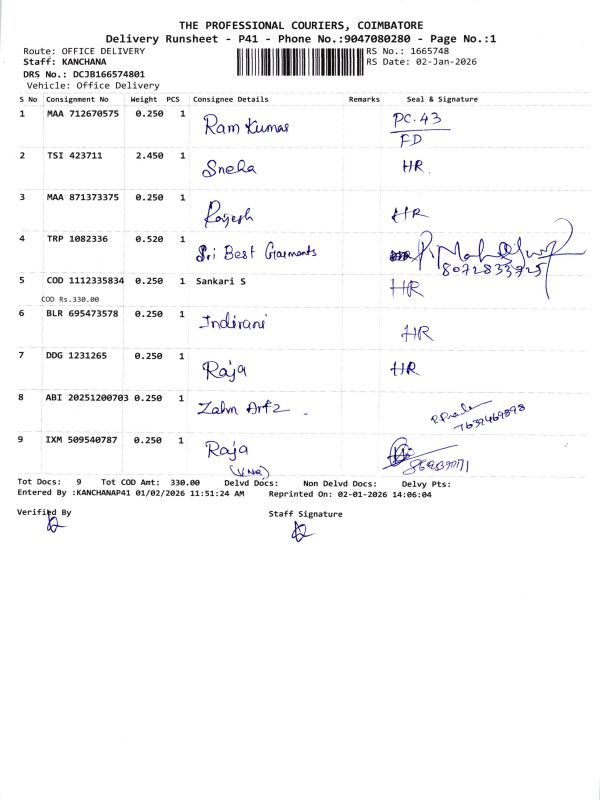 THE PROFESSIONAL COURIERS, COIMBATORE
Delivery Runsheet - P41 - Phone No.:9047080280 - Page No.:1
Route: OFFICE DELIVERY RS No.: 1665748
Staff: KANCHANA RS Date: 02-Jan-2026
DRS No.: DCJB166574801
Vehicle: Office Delivery
S No Consignment No Weight PCS Consignee Details Remarks Seal & Signature
1 MAA 712670575 0.250 1 Ram Kumar PC.43
FD
2 TSI 423711 2.450 1 Sneha HR.
3 MAA 871373375 0.250 1 Rajesh HR
4 TRP 1082336 0.520 1 Sri Best Garments
8072833725
5 COD 1112335834 0.250 1 Sankari S HR
COD Rs.330.00
6 BLR 695473578 0.250 1 Indirani HR
7 DDG 1231265 0.250 1 Raja HR
8 ABI 20251200703 0.250 1 Zahn Artz
9 IXM 509540787 0.250 1 Raja
Tot Docs: 9 Tot COD Amt: 330.00 Delvd Docs: Non Delvd Docs: Delvy Pts:
Entered By :KANCHANAP41 01/02/2026 11:51:24 AM Reprinted On: 02-01-2026 14:06:04
Verified By Staff Signature